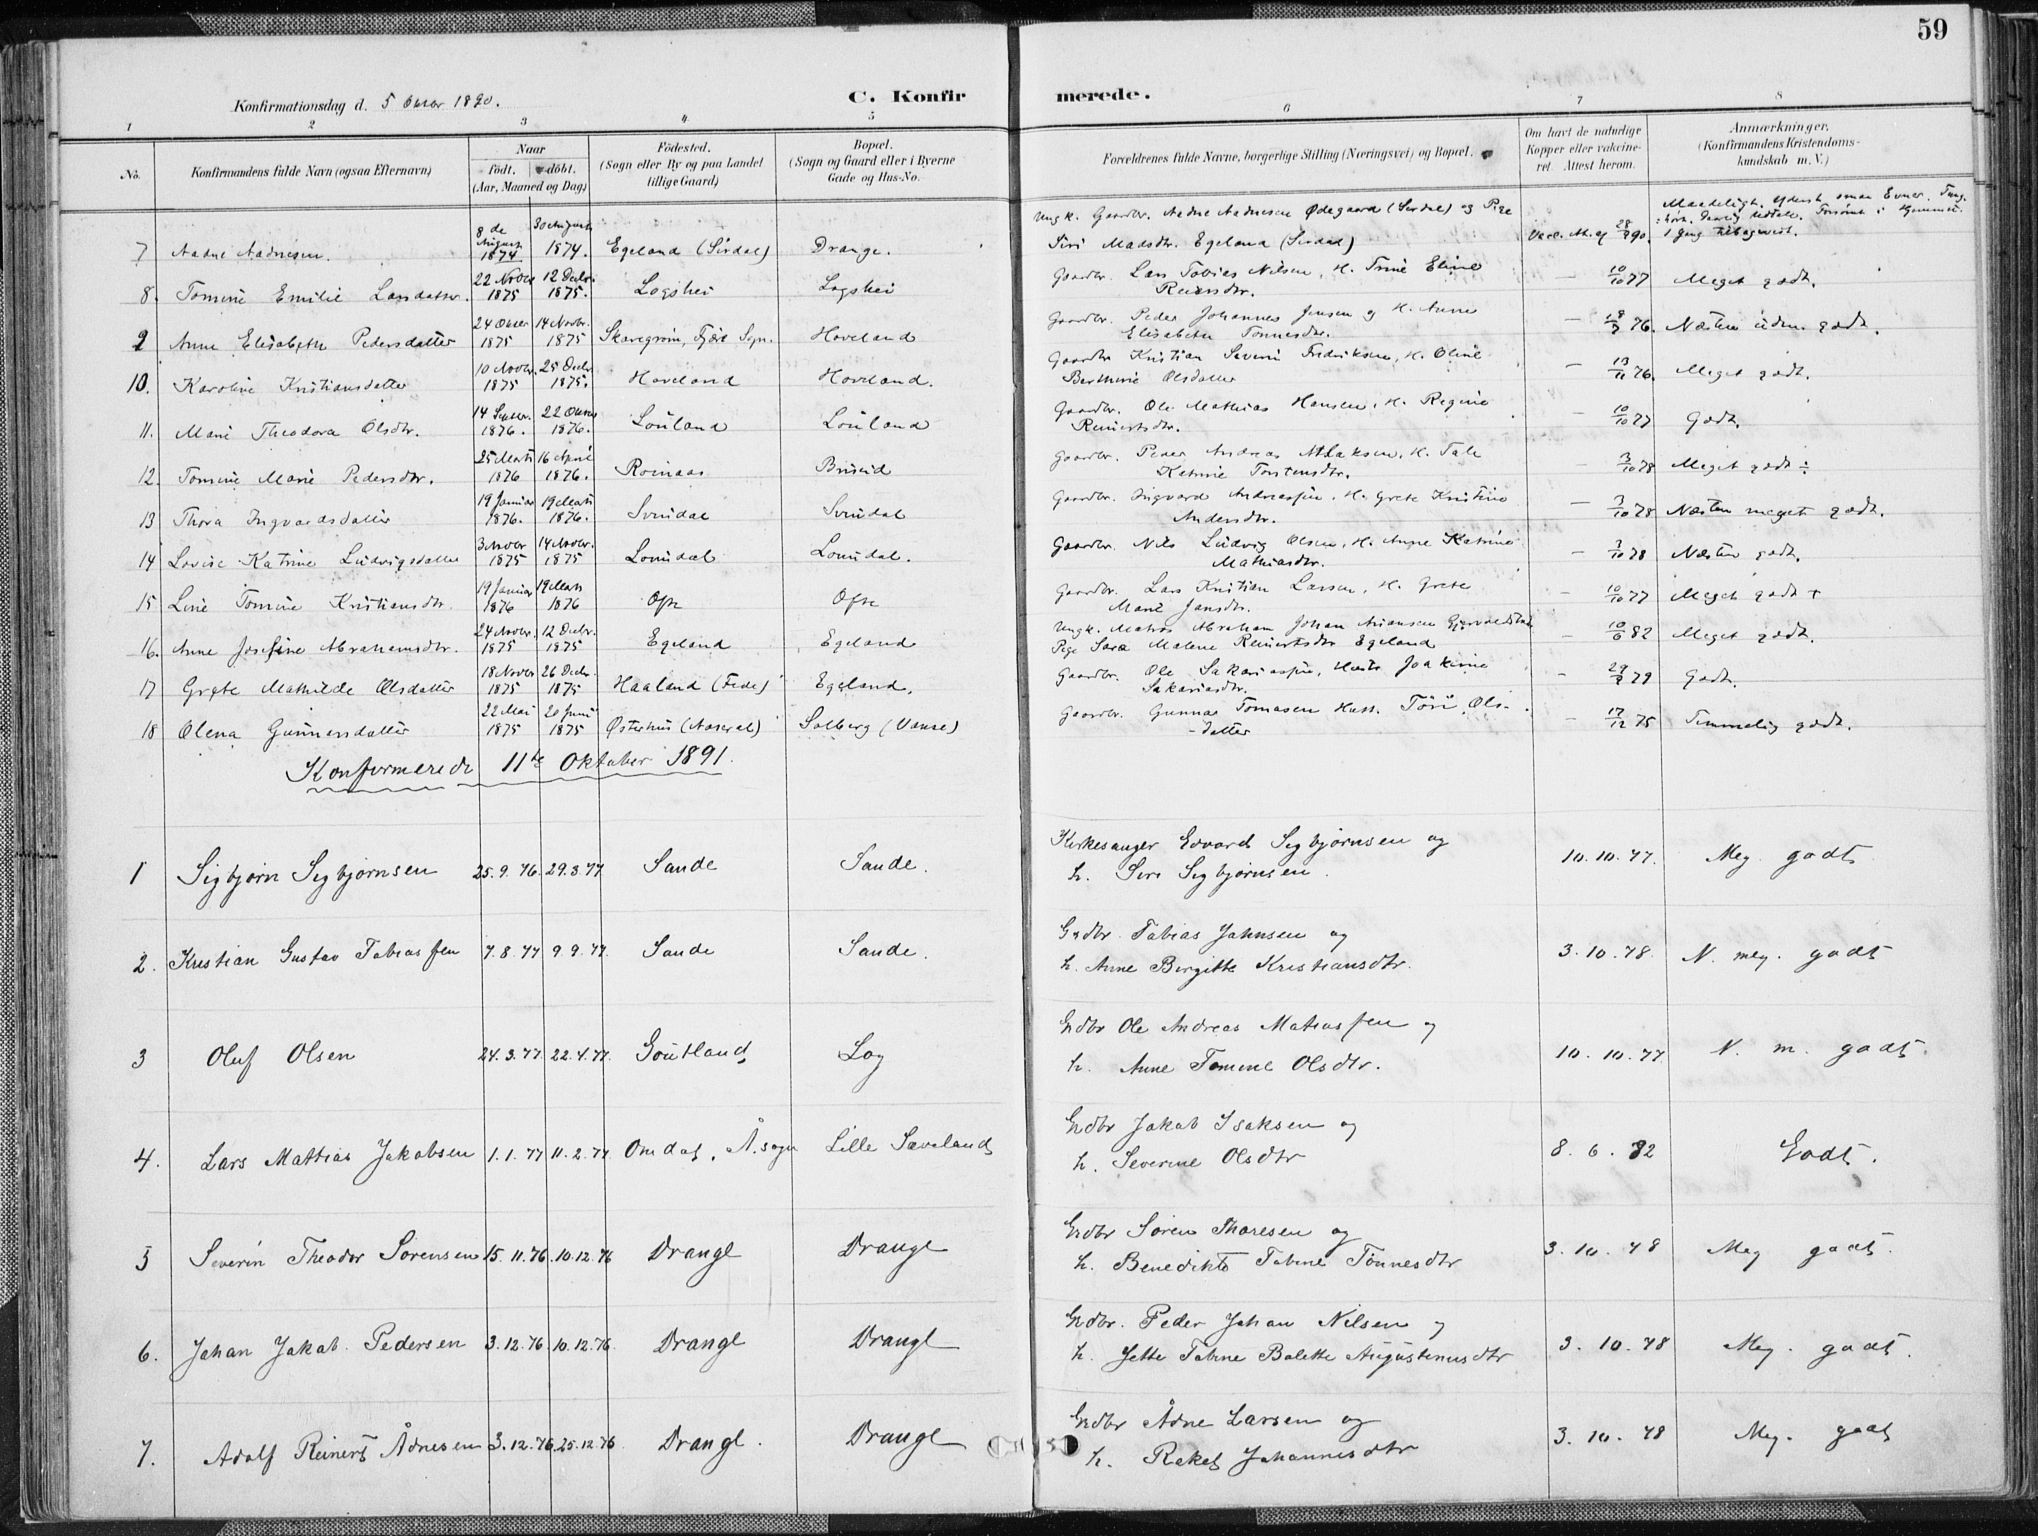 59
Konfirmationsdag d. 5 1890.
C. Konfirmerede.
1 2 3 4 5 6 7 8
No. Konfirmandens fulde Navn (ogsaa Efternavn) Naar født. døbt. (Aar, Maaned og Dag) Fødested. (Sogn eller By og paa Landet tillige Gaard) Bopæl. (Sogn og Gaard eller i Byerne Gade og Hus-No. Forældrenes fulde Navne, borgerlige Stilling (Næringsvei) og Bopæl. Om havt de naturlige Kopper eller vakcineret. Attest herom. Anmærkninger. (Konfirmandens Kristendomskundskab m. V.)
7 Aadne Aadnesen. 8de August 1874 30 August 1874. Egeland (Sirdal) Drange. Ungk. Gaardbr. Aadne Aadnesen Ødegaard (Sirdal) og Pige Siri Madsdtr. Egeland (Sirdal) Vacc. At. af 28/ 90. Maadeligt. Yderst smaa Evner. 1 Gang tilbagevist.
8. Tomine Emilie Larsdatter. 22 Novbr 1875 12 Decbr. 1875. Logshei Logshei Gaardbr. Lars Tobias Nilsen, H. Trine Eline Reiersdtr. — 10/10 77 Meget godt.
9 Anne Elisabeth Pedersdatter 24 Octbr 1875 14 Novbr. 1875 Skaregrøm, Fjære Sogn. Hoveland Gaardbr. Peder Johannes Jensen og H. Anne Elisabeth Tønnesdtr. — 76. Næsten godt.
10. Karoline Kristiansdatter 10 Novbr. 1875 25 Decbr. 1875. Hoveland Hoveland. Gaardbr Kristian Severin Fredriksen, H. Oline Berthine Olsdatter — 13/11 76. Meget godt.
11. Marie Theodora Olsdtr. 14 Septbr. 1876. 22 Octbr 1876. Louland Louland Gaardbr. Ole Mathias Hansen, H. Regine Reinertsdtr. — 10/10 77 Godt.
12. Tomine Marie Pedersdtr. 25 Marts 1876 16 April 1876. Roinaas Briseid Gaardbr. Peder Andreas Isaksen, H. Tale Katrine Torstensdtr. — 3/10 78 Meget godt ÷
13 Thora Ingvardsdatter 19 Januar 1876. 19 Marts 1876. Svindal Svindal Gaardbr. Ingvard Andreassen, H. Grete Kristine Andersdtr. — 3/10 78 Næsten meget godt.
14 Lovise Katrine Ludvigsdatter 3 Novbr 1875 14 Novbr. 1875 Lomdal Lomdal. Gaardbr. Nils Ludvig Olsen, H. Anne Katrine Mathiasdtr. — 3/10 78 Næsten godt.
15 Line Tomine Kristiansdtr. 19 Januar 1876 19 Marts 1876 Ofte Ofte Gaardbr. Lars Kristian Larsen, H. Grete Marie Jansdtr. — 10/10 77 Meget godt +
16. Anne Josefine Abrahamsdtr. 24 Novbr. 1875 12 Decbr. 1875 Egeland Egeland Ungk. Matros Abraham Johan Ariansen Pige Sara Malene Reinertsdtr Egeland — 10/6 82 Meget godt.
17 Grete Mathilde Olsdatter 18 Novbr 1875 26 Decbr. 1875 Haaland (Fede) Egeland. Gaardbr. Ole Sakariassen, Hustr. Joakime Sakariasdtr. — 79 Godt.
18 Olena Gunnersdatter 22 Mai 1875 20 Juni 1875 Østerhus (Aaseral) Solberg (Vanse) Gaardbr. Gunnar Tomasen Hust. Tøri Ols-datter — 17/12 75 Temmelig godt.
Konfirmerede 11te Oktober 1891.
1 Sigbjørn Sigbjørnsen 25.9.76. 29.3.77 Sande Sande. Kirkesanger Edvard Sigbjørnsen og h. Siri Sigbjørnsen. 10.10.77. Meg godt
2. Kristian Gustav Tobiassen 7.8.77 9.9.77. Sande Sande. Grdbr Tobias Jahnsen og h. Anne Birgitte Kristiansdtr. 3.10.78. N. meg. godt
3 Oluf Olsen 24.3.77. 22.4.77. Goutland Log Grdbr Ole Andreas Matiassen og h. Anne Tomine Olsdtr. 10.10.77 N. m. godt.
4. Lars Mattias Jakobsen 1.1.77 11.2.77 Omdal, Å.sogn Lille Sæveland Grdbr Jakob Isaksen og h. Severine Olsdtr 8.6.82 Godt.
5 Severin Theodor Sørensen 15.11.76. 10.12.76 Drange Drange Grdbr Søren Tharesen og h. Benedikte Tobine Tønnesdtr 3.10.78 Meg godt.
6. Johan Jakob Pedersen 3.12.76. 10.12.76. Drange Drange Grdbr. Peder Johan Nilsen og h. Jette Tobine Bolette Augustinusdtr 3.10.78 Meg. godt.
7. Adolf Reinert Ådnesen 3.12.76. 25.12.76 Drange. Drange Grdbr Ådne Larsen og h. Rakel Johannesdtr 3.10.78 Meg. godt